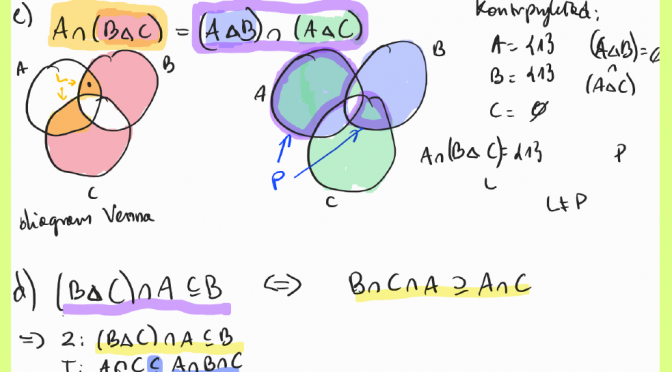 c) A∩(BΔC) = (AΔB)∩(AΔC)
A
B
C
diagram Venna
A
B
C
P
Kontrprzykład:
A = {1}
B = {1}
C = ∅
(AΔB) =
∩
(AΔC)
A∩(BΔC) = {1}
L
P
L≠P
d) (BΔC)∩A ⊆ B ⇔ B∩C∩A ⊇ A∩C
⇒ Z: (BΔC)∩A ⊆ B
T: A∩C ⊆ A∩B∩C